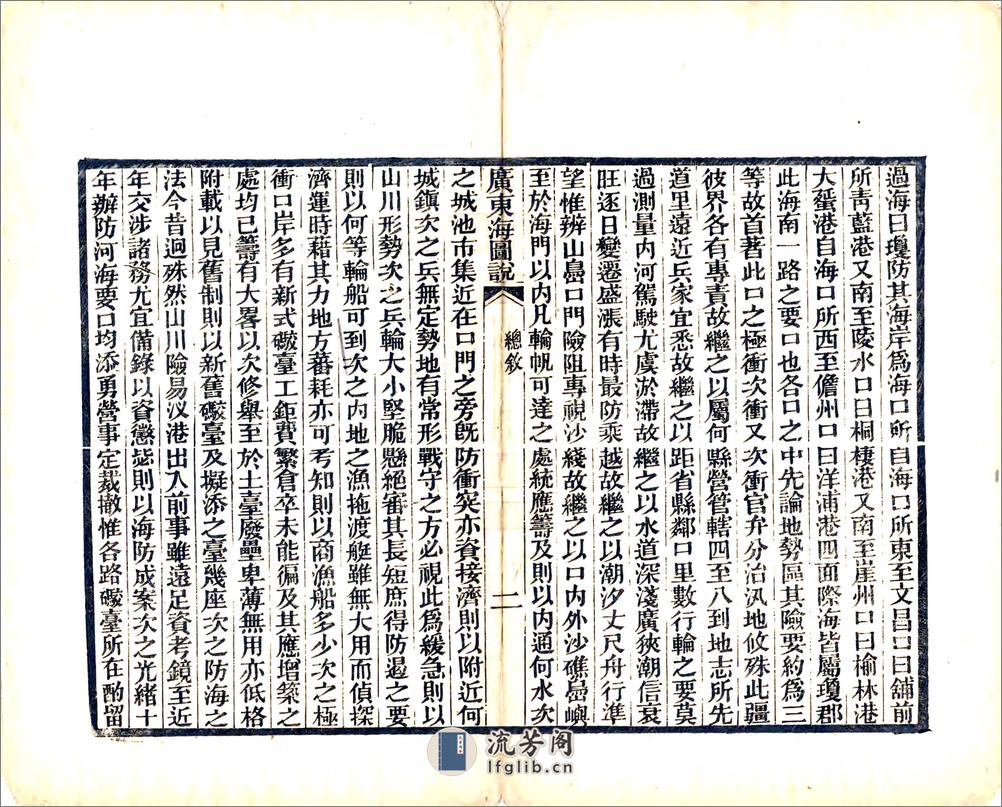 過海曰瓊防其海岸爲海口所自海口所東至文昌口曰舖前
所靑藍港又南至陵水口曰桐棲港又南至崖州口曰榆林港
大蜑港自海口所西至儋州口曰洋浦港四面際海皆屬瓊郡
此海南一路之要口也各口之中先論地勢區其險要約爲三
等故首著此口之極衝次衝又次衝官弁分治汛地攸殊此疆
彼界各有專責故繼之以屬何縣營管轄四至八到地志所先
道里遠近兵家宜悉故繼之以距省縣鄰口里數行輪之要莫
過測量內河駕駛尤虞淤滯故繼之以水道深淺廣狹潮信衰
旺逐日變遷盛漲有時最防乘越故繼之以潮汐丈尺舟行準
望惟辦山嵓口門險阻專視沙綫故繼之以口內外沙礁嵓嶼
至於海門以內凡輪帆可達之處統應籌及則以內通何水次
廣東海圖說
總敘
二
之城池市集近在口門之旁旣防衝突亦資接濟則以附近何
城鎮次之兵無定勢地有常形戰守之方必視此爲緩急則以
山川形勢次之兵輪大小堅脆懸絕審其長短庶得防遏之要
則以何等輪船可到次之內地之漁拖渡艇雖無大用而偵探
濟運時藉其力地方蕃耗亦可考知則以商漁船多少次之極
衝口岸多有新式礮臺工鉅費繁倉卒未能徧及其應增築之
處均已籌有大畧以次修舉至於土臺廢壘卑薄無用亦低格
附載以見舊制則以新舊礮臺及擬添之臺幾座次之防海之
法今昔迥殊然山川險易汊港出入前事雖遠足資考鏡至近
年交涉諸務尤宜備錄以資懲毖則以海防成案次之光緒十
年辦防河海要口均添勇營事定裁撤惟各路礮臺所在酌留
流芳阁
lfglib.cn